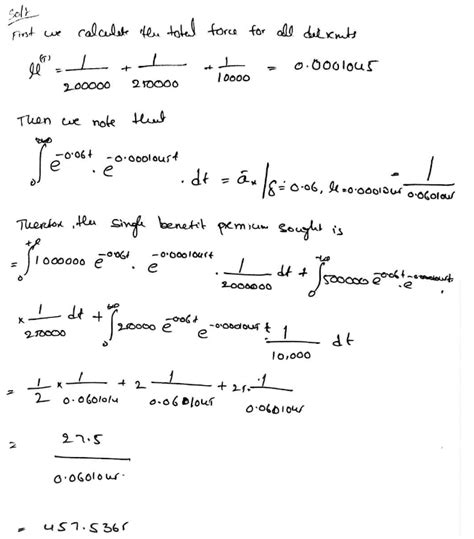 Solⁿ
First we calculate the total force for all
μ^(τ) = 1/200000 + 1/250000 + 1/10000 = 0.0001045
Then we note that
∫₀^∞ e^-0.06t . e^-0.0001045t . dt = āx | δ=0.06, μ=0.0001045 = 1/0.0601045
Therefore, the single benefit premium sought is
= ∫₀ 1000000 e^-0.06t . e^-0.0001045t . 1/2000000 dt + ∫₀^∞ 500000 e^-0.06t . e
× 1/250000 dt + ∫₀^∞ 250000 e^-0.06t e^-0.0001045t . 1/10,000 dt
= 1/2 × 1/0.0601045 + 2 1/0.0601045 + 25. 1/0.0601045
= 27.5/0.0601045.
= 457.5365